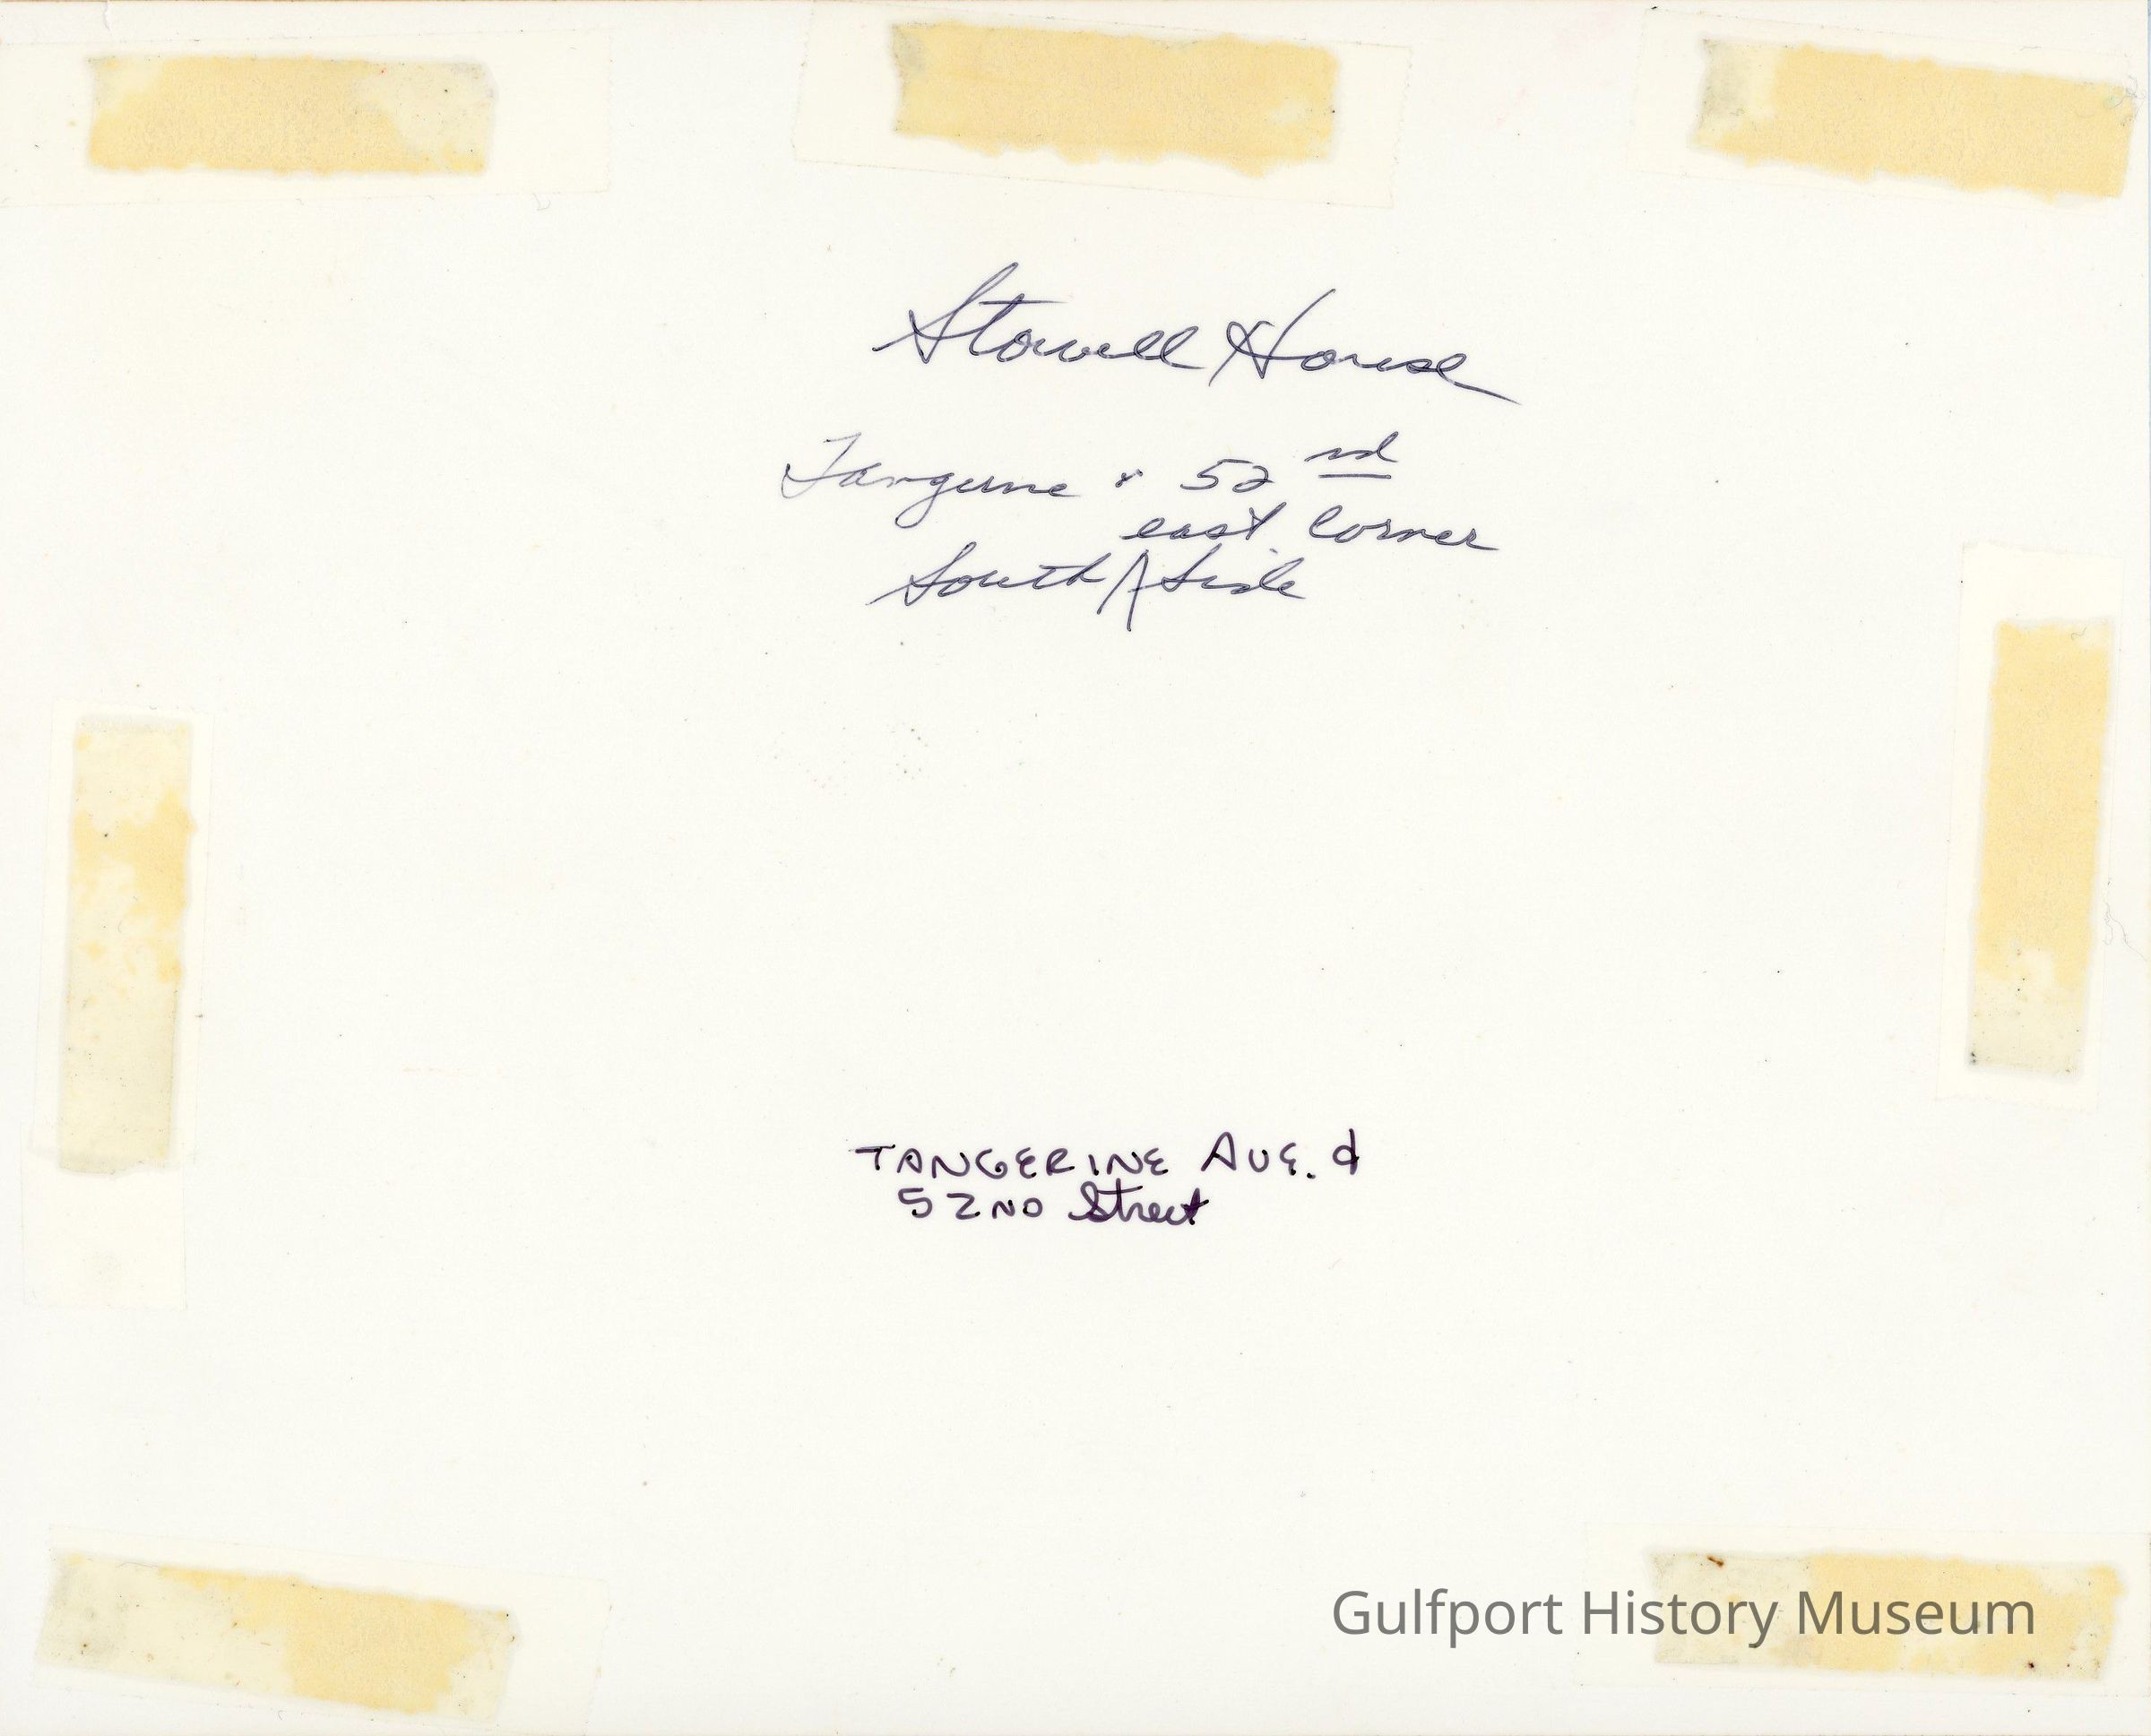 Stowell House
Tangerine & 52nd
east Corner
South / Side
TANGERINE AVE. &
52ND Street
Gulfport History Museum